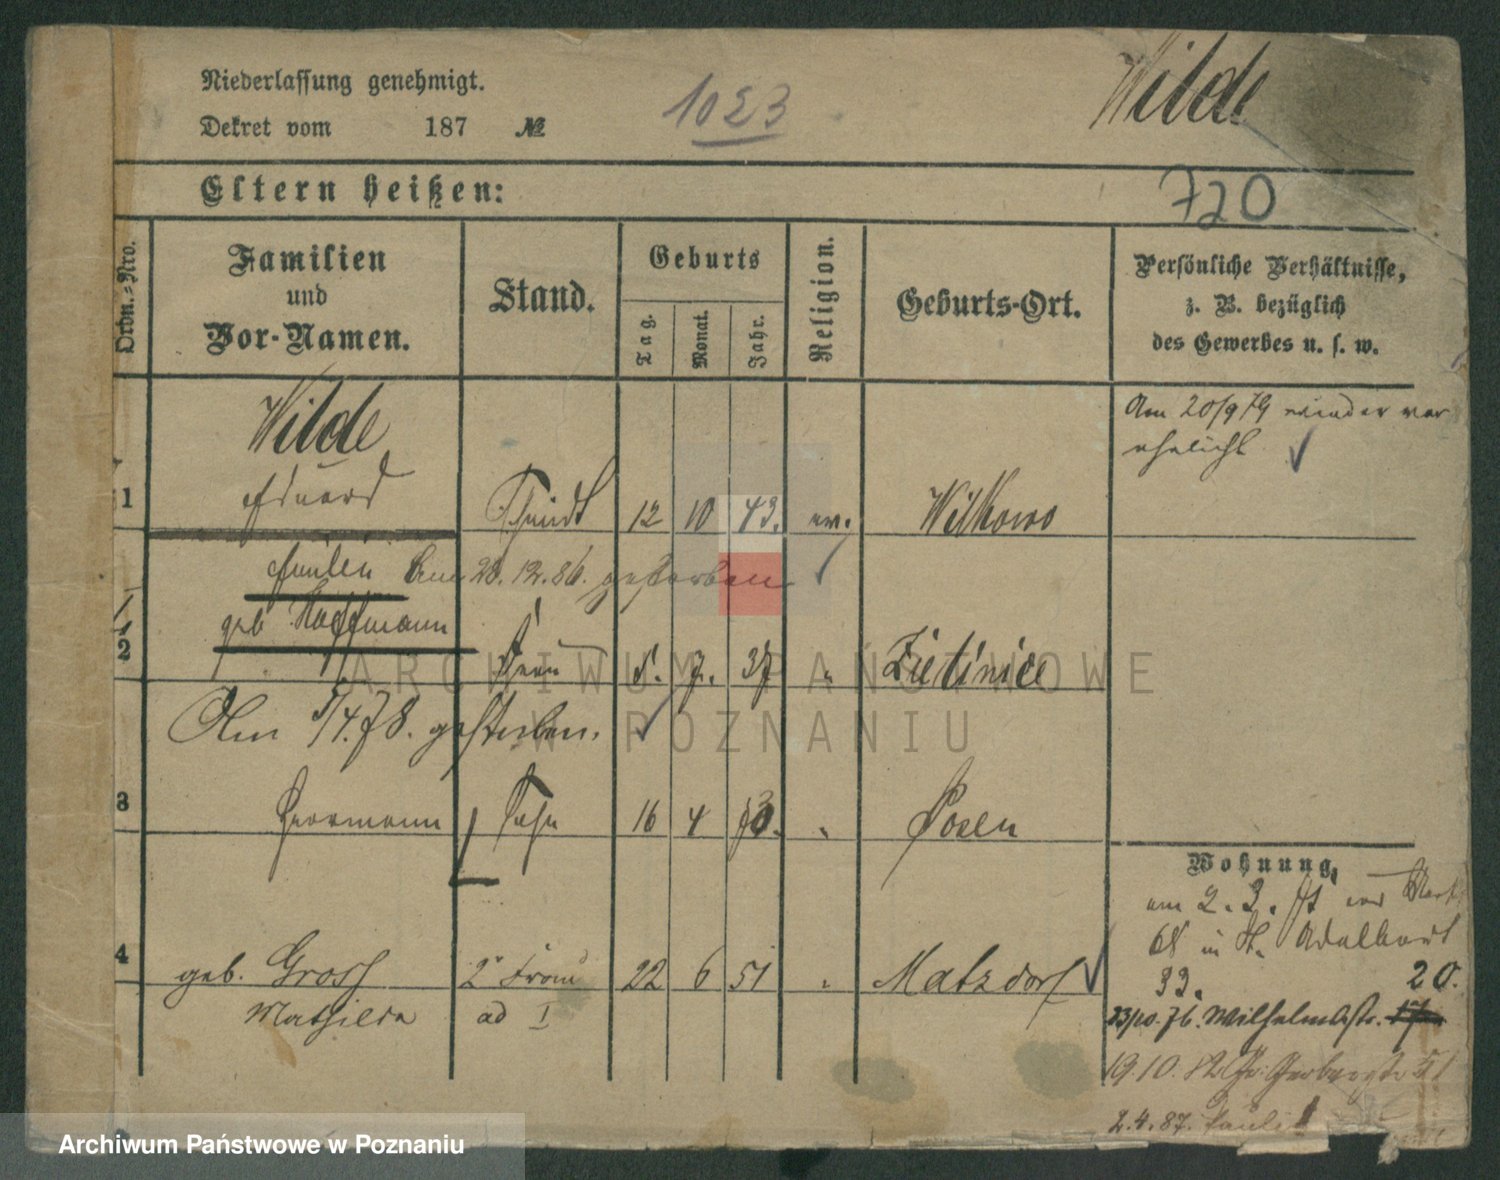 Niederlassung genehmigt.
Dekret vom 187 № 1023
Wilde
Eltern heißen:
720
Ordn.-Nro.
Familien
und
Vor-Namen.
Stand.
Geburts
Tag.
Monat.
Jahr.
Religion.
Geburts-Ort.
Persönliche Verhältnisse,
z. B. bezüglich
des Gewerbes u. s. w.
Am 20/9 79 wieder ver
ehelicht
Wilde
1 Eduard 12 10 43. ev. Wilkowo
am 28.12.86. gestorben
geb Hoffmann
2 Frau 5. 7. 37 " Zielinice
Am 5/4.78. gestorben.
3 Herrmann Sohn 16 4 " Posen
4 geb. Gross 2te Frau 22 6 51 " Matzdorf
Mathilda ad I
Wohnung
am 2. 3.
68 in St. Adalbert
33. 20.
23/10.76. Wilhelmstr.
19.10. Gr. Gerberstr 51
2.4.87.
ARCHIWUM PAŃSTWOWE
W POZNANIU
Archiwum Państwowe w Poznaniu